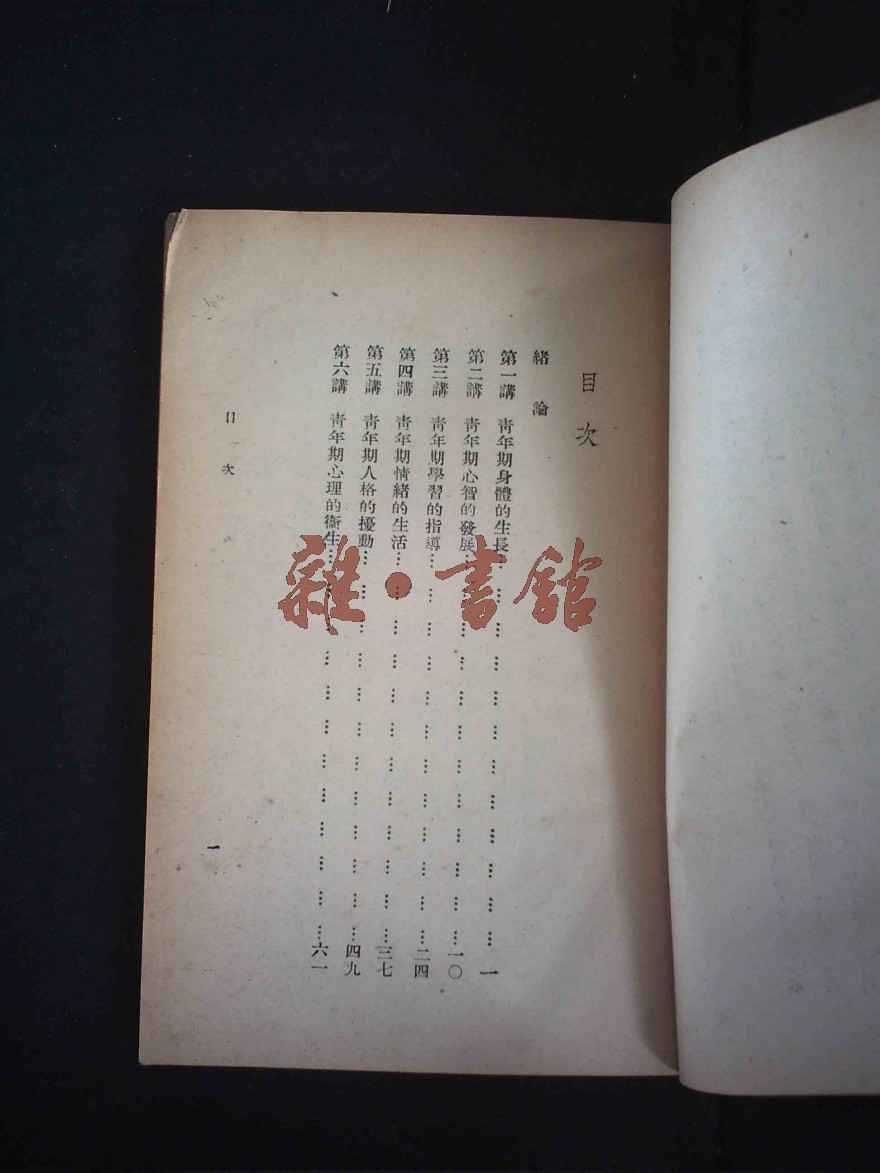 目次
緒論
第一講 靑年期身體的生長…………………………………一
第二講 靑年期心智的發展…………………………………一〇
第三講 靑年期學習的指導…………………………………二四
第四講 靑年期情緒的生活…………………………………三七
第五講 靑年期人格的擾動…………………………………四九
第六講 靑年期心理的衞生…………………………………六一
目次
一
雜·書館